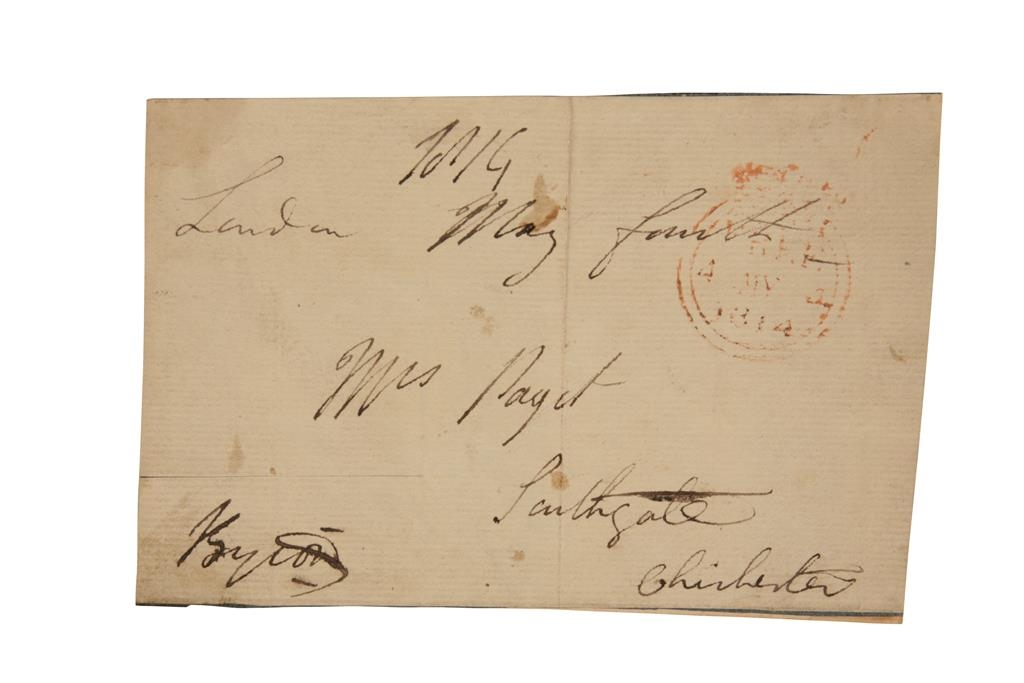 1814
London May fourth
Mrs Paget
Southgate
Chichester
Byron
4 MY 4
1814